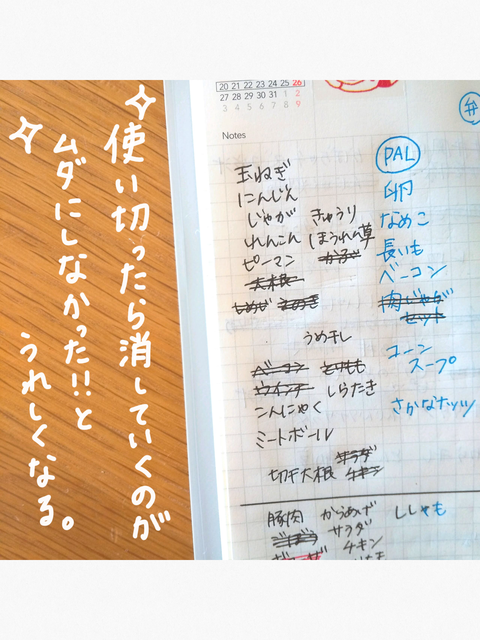 ✧使い切ったら消していくのが
✧ムダにしなかった!!と
うれしくなる。
20 21 22 23 24 25 26
27 28 29 30 31 1 2
3 4 5 6 7 8 9
Notes
弁
玉ねぎ
にんじん
じゃが きゅうり
れんこん ほうれん草
ピーマン
大根
しめじ えのき
うめ干し
ベーコン とりもも
ウインナー しらたき
こんにゃく
ミートボール
サラダ
切干大根 チキン
PAL
卵
なめこ
長いも
ベーコン
肉じゃが
セット
コーン
スープ
さかなナッツ
豚肉 からあげ ししゃも
ごぼう サラダ
チキン